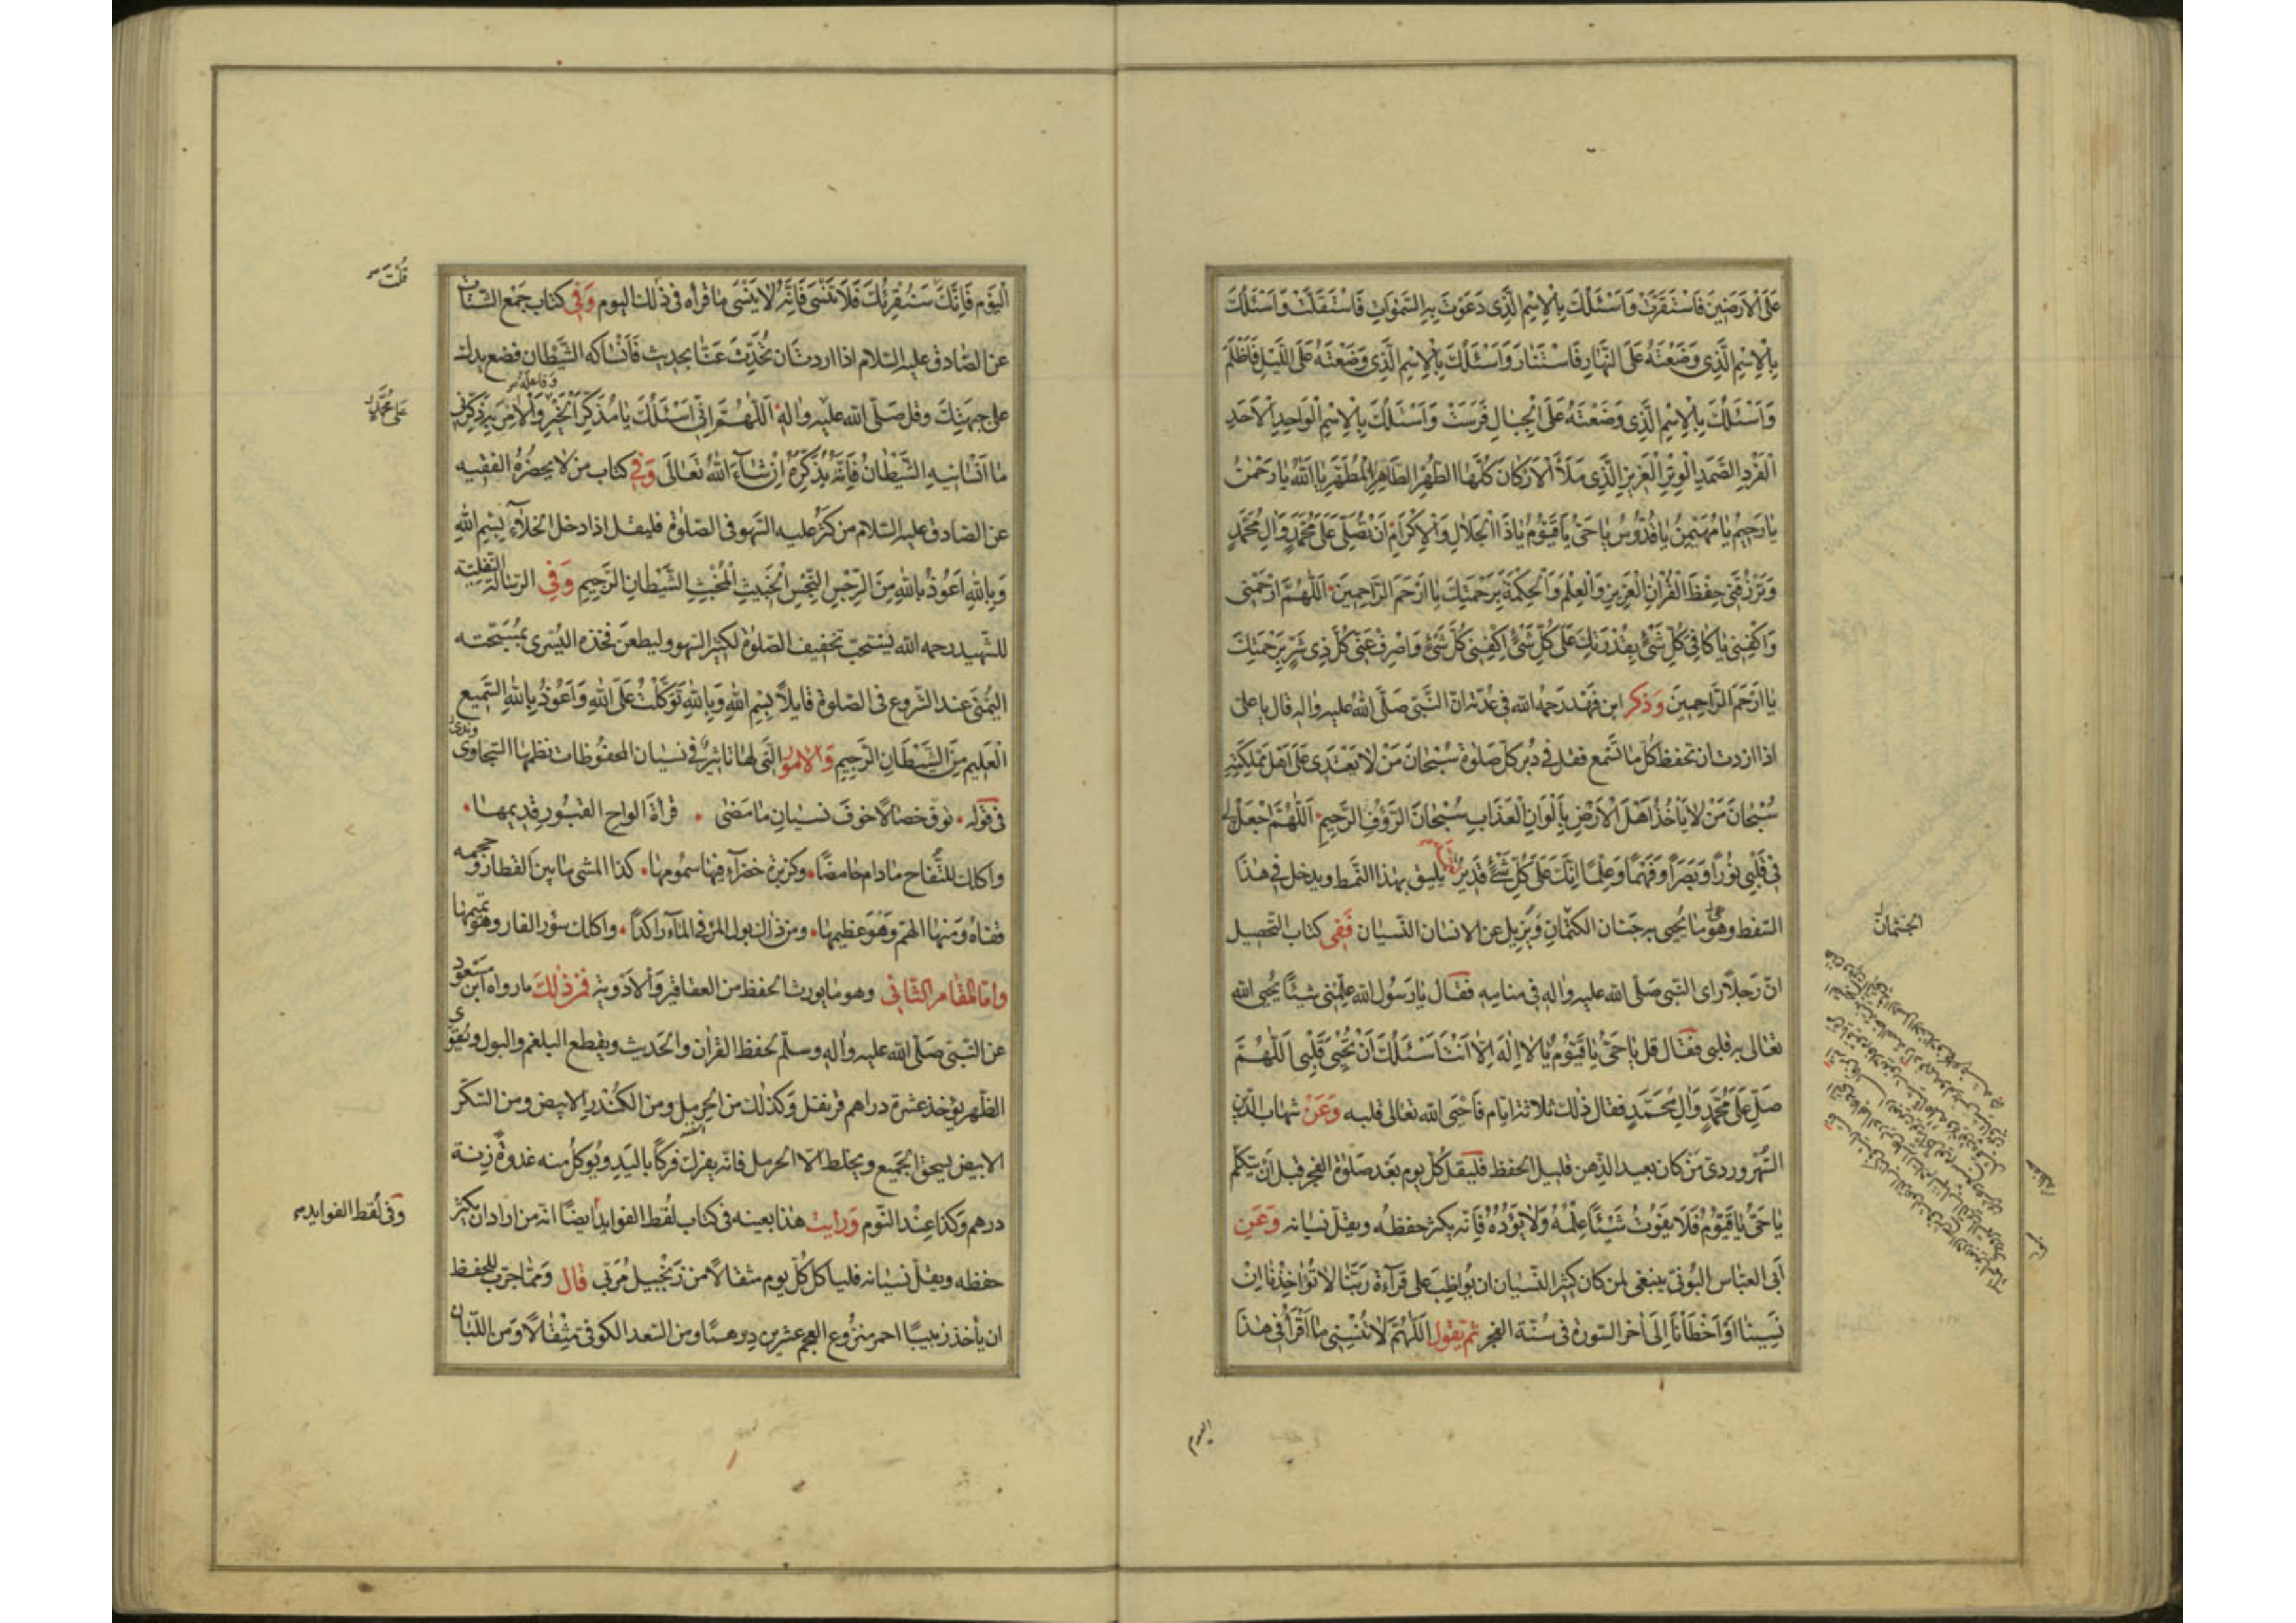 عَلَى الْاَرَضِينَ فَاسْتَقَرَّتْ وَاَسْئَلُكَ بِالْاِسْمِ الَّذِى دَعَوْتَ بِهِ السَّمٰوَاتِ فَاسْتَقَلَّتْ وَاَسْئَلُكَ
بِالْاِسْمِ الَّذِى وَضَعْتَهُ عَلَى النَّهَارِ فَاسْتَنَارَ وَاَسْئَلُكَ بِالْاِسْمِ الَّذِى وَضَعْتَهُ عَلَى اللَّيْلِ فَاَظْلَمَ
وَاَسْئَلُكَ بِالْاِسْمِ الَّذِى وَضَعْتَهُ عَلَى الْجِبَالِ فَرَسَتْ وَاَسْئَلُكَ بِالْاِسْمِ الْوَاحِدِ الْاَحَدِ
الْفَرْدِ الصَّمَدِ الْوِتْرِ الْعَزِيزِ الَّذِى مَلَأَ الْاَرْكَانَ كُلَّهَا الطُّهْرِ الطَّاهِرِ الْمُطَهَّرِ يَا اَللّٰهُ يَا رَحْمٰنُ
يَا رَحِيمُ يَا مُهَيْمِنُ يَا قُدُّوسُ يَا حَىُّ يَا قَيُّومُ يَا ذَا الْجَلَالِ وَالْاِكْرَامِ اَنْ تُصَلِّىَ عَلَى مُحَمَّدٍ وَاٰلِ مُحَمَّدٍ
وَتَرْزُقَنِى حِفْظَ الْقُرْاٰنِ الْعَزِيزِ وَالْعِلْمَ وَالْحِكْمَةَ بِرَحْمَتِكَ يَا اَرْحَمَ الرَّاحِمِينَ اَللّٰهُمَّ ارْحَمْنِى
وَاكْفِنِى يَا كَافِىَ كُلِّ شَىْءٍ بِقُدْرَتِكَ عَلَى كُلِّ شَىْءٍ اِكْفِنِى كُلَّ شَىْءٍ وَاصْرِفْ عَنِّى كُلَّ ذِى شَرٍّ بِرَحْمَتِكَ
يَا اَرْحَمَ الرَّاحِمِينَ وَذكر ابن فَهْد رَحمه الله فى عُدّته انّ النَّبى صَلَّى اللهُ عليه واٰله قال يا على
اذا اردت ان تحفظ كُلّ ما تَسْمع فقل فى دُبر كلّ صَلوٰة سُبْحَانَ مَنْ لَا يَعْتَدِى عَلَى اَهْلِ مَمْلَكَتِهِ
سُبْحَانَ مَنْ لَا يَأْخُذُ اَهْلَ الْاَرْضِ بِاَلْوَانِ الْعَذَابِ سُبْحَانَ الرَّؤُفِ الرَّحِيمِ اَللّٰهُمَّ اجْعَلْ لِى
فِى قَلْبِى نُورًا وَبَصَرًا وَفَهْمًا وَعِلْمًا اِنَّكَ عَلَى كُلِّ شَىْءٍ قَدِيرٌ يليق بهٰذا النّمط ويدخل فى هٰذا
السّفط وهو ما يُحيى به جَنان الكتمان وَيُزيل عن الانسان النّسيان فَفى كتاب التّحصيل
انّ رَجلًا رأى النّبى صَلّى الله عليه واٰله فى منامه فقال يا رَسُول الله علّمنى شيئًا يُحيى الله
تعالى به قلبى فقال قل يَا حَىُّ يَا قَيُّومُ يَا لَا اِلٰهَ اِلَّا اَنْتَ اَسْئَلُكَ اَنْ تُحْيِىَ قَلْبِى اَللّٰهُمَّ
صَلِّ عَلَى مُحَمَّدٍ وَاٰلِ مُحَمَّدٍ فقال ذٰلك ثلاثة ايّام فَاَحْيَى الله تعالى قلبه وَعَنْ شهاب الدّين
السُّهروردىّ مَن كان بعيد الذّهن قليل الحفظ فليقل كُلّ يوم بَعْد صَلوٰة الفجر قبل اَن يتكلّم
يَا حَىُّ يَا قَيُّومُ فَلَا يَفُوتُ شَيْئًا عِلْمُهُ وَلَا يَؤُدُهُ فَانّه يكثر حفظه ويقلّ نسيانه وَعَن
اَبى العبّاس البُونى ينبغى لمن كان كثير النّسيان ان يُواظِب على قرآءة رَبَّنَا لَا تُؤَاخِذْنَا اِنْ
نَسِينَا اَوْ اَخْطَأْنَا اِلى اٰخر السّورة فى سُنّة الفجر ثمّ يَقول اَللّٰهُمَّ لَا تُنْسِنِى مَا اَقْرَأُ فِى هٰذَا
الجثمان
اليوم
الْيَوْمِ فَاِنَّكَ سَنُقْرِئُكَ فَلَا تَنْسَى فَانّه لا يَنْسَى ما قرأه فى ذٰلك اليوم وَفى كتاب جَمْع الشّتات
عن الصّادق عليه السّلام اذا اردت ان تُحَدّثَ عَنّا بحديث فَاَنْسَاكه الشّيْطان فضع يدك
على جبهتك وقل صَلَّى الله عليه واٰله اَللّٰهُمَّ اِنِّى اَسْئَلُكَ يَا مُذَكِّرَ الْخَيْرِ وَالْاٰمِرَ بِهِ ذَكِّرْنِى
وفاعله
مَا اَنْسَانِيهِ الشَّيْطَانُ فَانّه يُذَكِّره اِنْ شَاءَ اللهُ تَعَالَى وَفى كتاب من لا يحضرُهُ الفقيه
عن الصّادق عليه السّلام من كثر عليه السّهو فى الصّلوٰة فليقل اذا دخل الخلآء بِسْمِ اللهِ
وَبِاللهِ اَعُوذُ بِاللهِ مِنَ الرِّجْسِ النِّجْسِ الْخَبِيثِ الْمُخْبِثِ الشَّيْطَانِ الرَّجِيمِ وَفى الرّسالة النّفليّة
للشّهيد رحمه الله يستحبّ تخفيف الصّلوٰة لكثير السّهو وليطعن فخذه اليُسرى بمُسَبّحته
اليُمْنَى عند الشّروع فى الصّلوٰة قايلًا بِسْمِ اللهِ وَبِاللهِ تَوَكَّلْتُ عَلَى اللهِ وَاَعُوذُ بِاللهِ السَّمِيعِ
الْعَلِيمِ مِنَ الشَّيْطَانِ الرَّجِيمِ وَالامور الّتى لها تاثير فى نسيان المحفوظات نظمها السّخاوى
فى قوله توقّ خصالًا خوف نسيان ما مَضى قرأة الواح القبُور قديمها
واكلك للتُّفاح ما دام حامضًا وكزبرة خضرآء فيها سمُومها كذا المشى ما بين القطار
قفاه وَمنها الهمّ وَهُوَ عظيمها ومن ذٰلك بول المرْء فى المآء راكدًا واكلك سؤر الفار وهو تميمها
وامّا المقام الثّانى وهو ما يورث الحفظ من العقاقير وَالادْوية فمن ذٰلك ما رواه ابن مسعود
عن النّبىّ صَلَّى الله عليه واٰله وسلّم لحفظ القراٰن والحَديث ويقطع البلغم والبول ويُقوّى
الظّهر يؤخذ عشرة دراهم قرنفل وَكذٰلك من الحرمل ومن الكُنْدر الابيض ومن السّكّر
الابيض يسحق الجَميع ويخلط الّا الحرمل فانّه يفرك فركًا باليَد ويُوكل منه غدوة زنة
درهم وَكذا عِنْد النّوم وَرأيت هٰذا بعينه فى كتاب لُقط الفوايد ايضًا انّه من اراد ان يكثر
حفظه ويقلّ نسيانه فلياكل كُلّ يوم مثقالًا من زنجبيل مُربّى قال وَممّا جرّب للحفظ
ان يأخذ زبيبًا احمر منزُوع العجم عشرين درهمًا ومن السّعد الكوفى مثقالًا وَمن اللّبان
قُلْتَ
على محمّد
وفى لُقط الفوايد